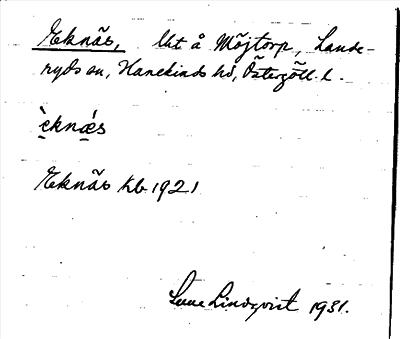 Eknäs, lht å Möjtorp, Lande-
ryds sn, Hanekinds hd, Östergötl. l.
èknǽs
Eknäs Kb. 1921
Sune Lindqvist 1931.